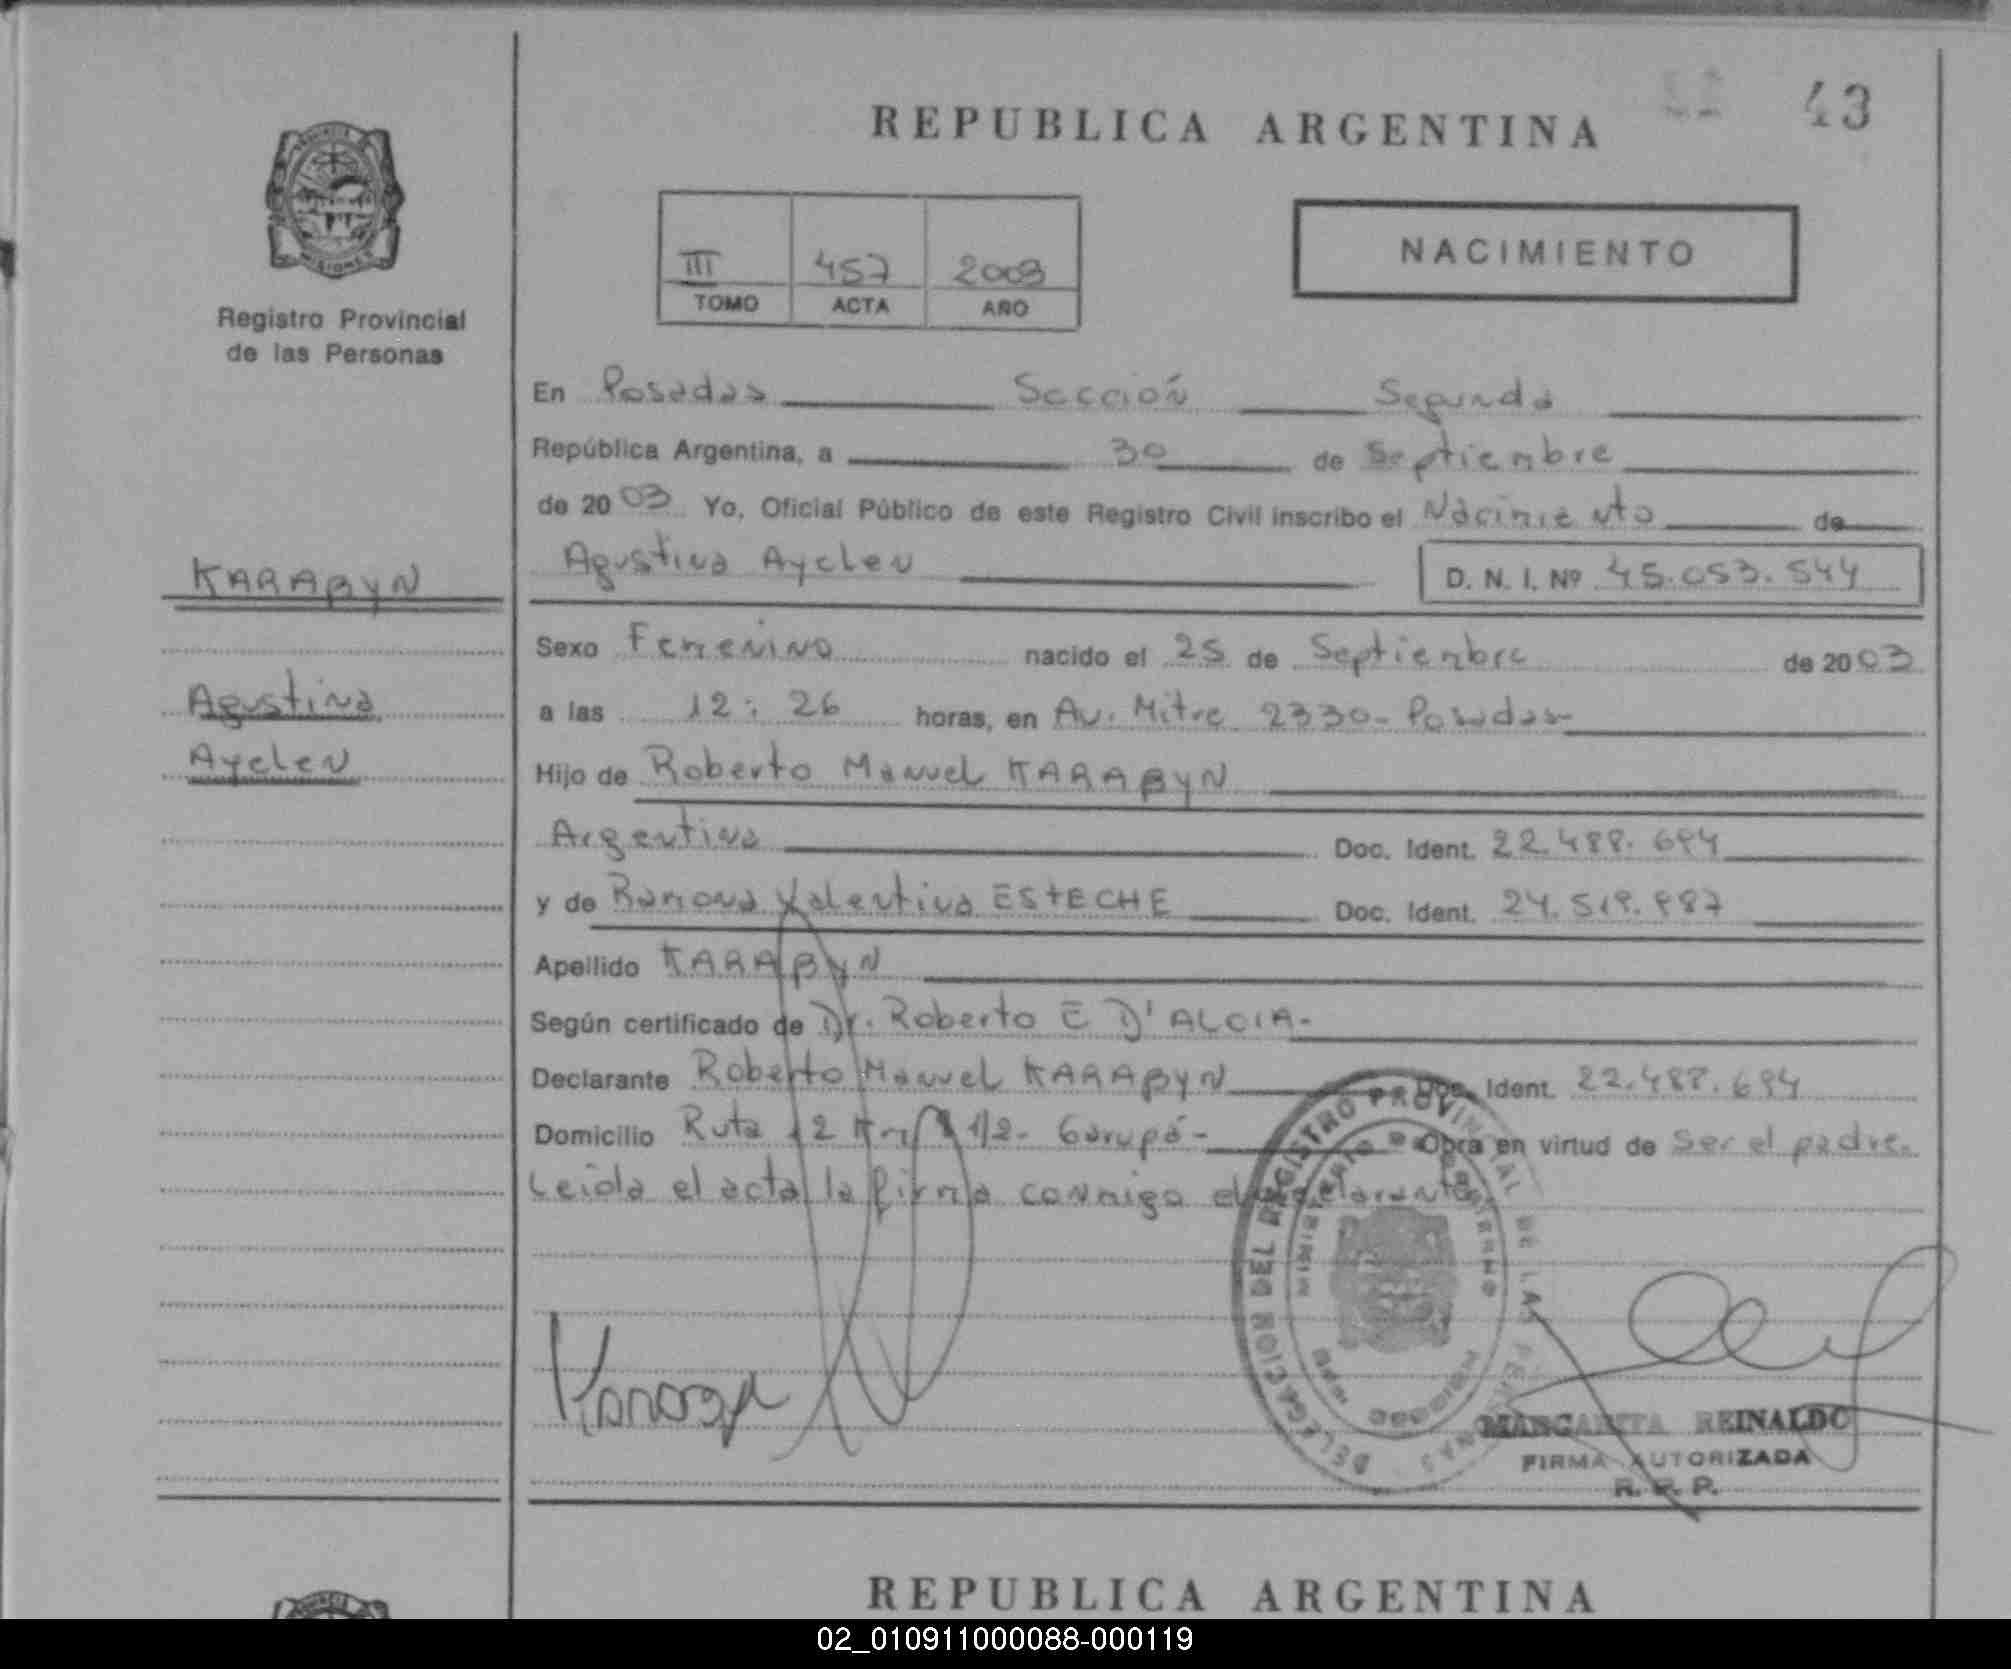 REPUBLICA ARGENTINA
43
III 457 2003
TOMO ACTA AÑO
NACIMIENTO
Registro Provincial
de las Personas
En Posadas Sección Segunda
República Argentina, a 30 de Septiembre
de 2003 Yo, Oficial Público de este Registro Civil inscribo el Nacimiento de
Agustina Ayelen D. N. I. Nº 45.053.544
KARABYN
Agustina
Ayelen
Sexo Femenino nacido el 25 de Septiembre de 2003
a las 12:26 horas, en Av. Mitre 2330- Posadas-
Hijo de Roberto Manuel KARABYN
Argentina Doc. Ident. 22.488.694
y de Ramona Valentina ESTECHE Doc. Ident. 24.519.887
Apellido KARABYN
Según certificado de Dr. Roberto E D'ALOIA-
Declarante Roberto Manuel KARABYN Doc. Ident. 22.488.694
Domicilio Ruta 12 Km 1/2- Garupá- Obra en virtud de Ser el padre.
Leida el acta la firma conmigo el declarante
DELEGACION DEL REGISTRO PROVINCIAL DE LAS PERSONAS
MARGARITA REINALDO
FIRMA AUTORIZADA
R. P. P.
REPUBLICA ARGENTINA
02_010911000088-000119